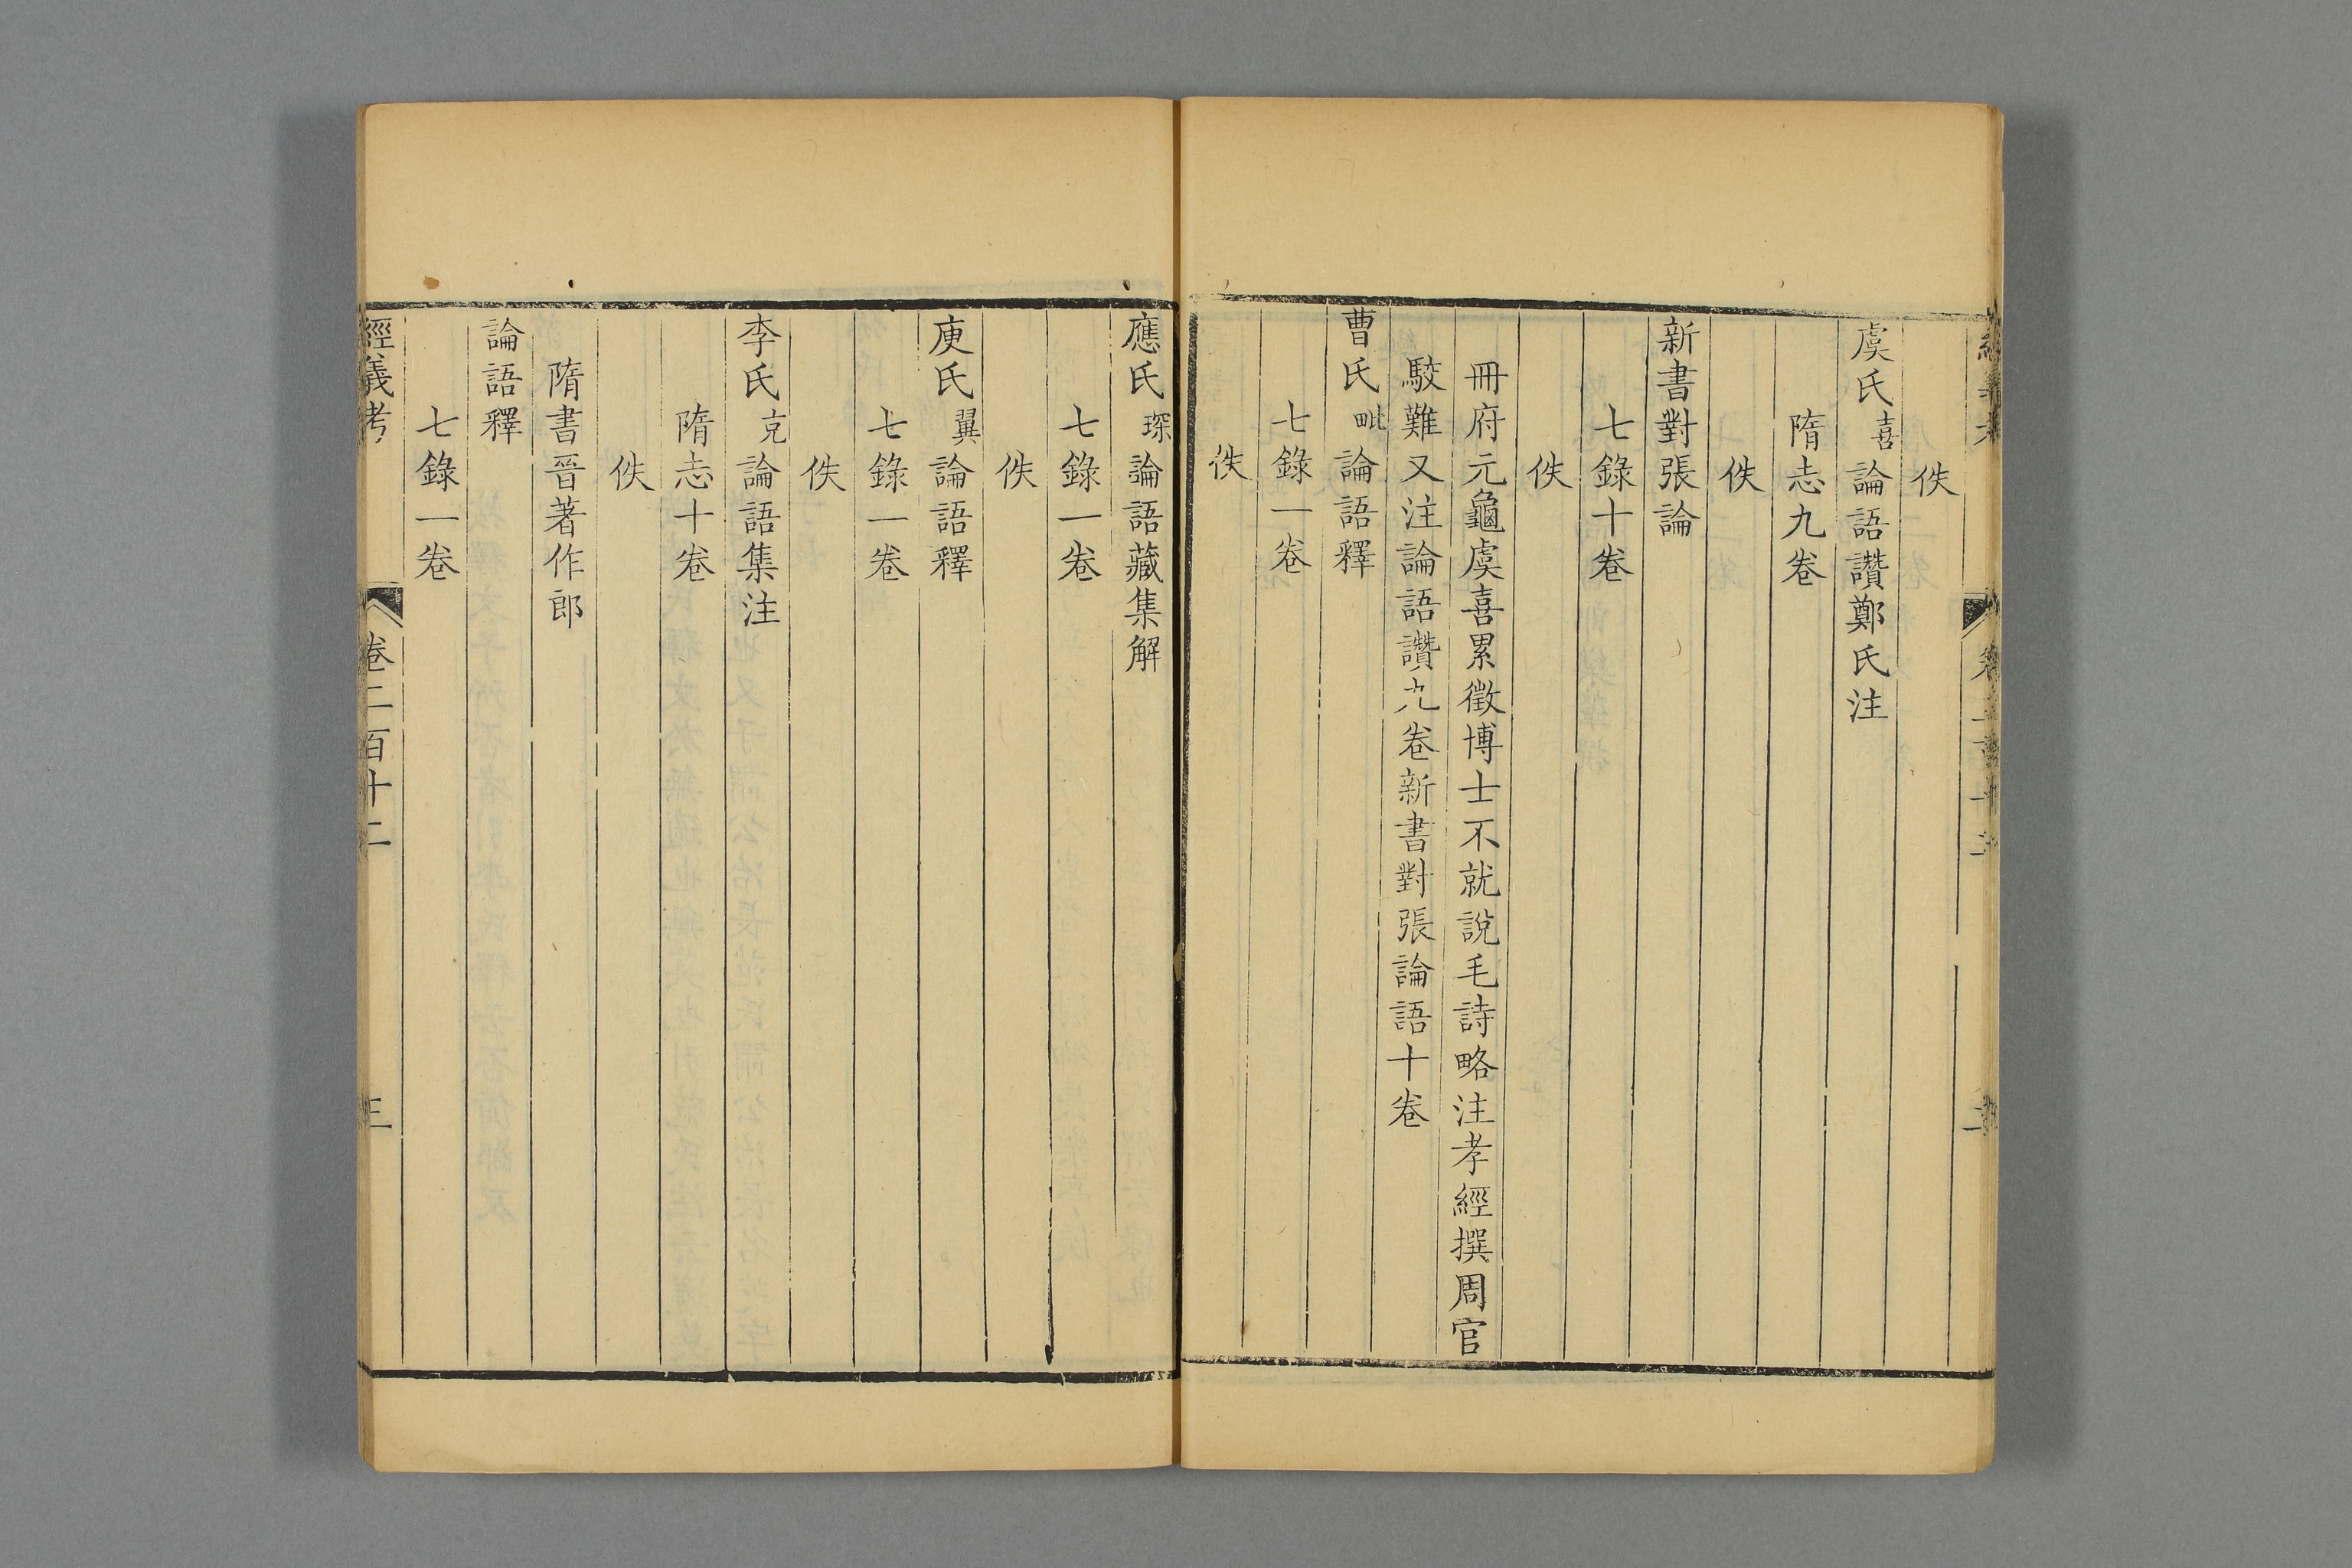 佚
虞氏喜論語讚鄭氏注
隋志九卷
佚
新書對張論
七錄十卷
佚
冊府元龜虞喜累徵博士不就說毛詩略注孝經撰周官
駮難又注論語讚九卷新書對張論語十卷
曹氏毗論語釋
七錄一卷
佚
應氏琛論語藏集解
七錄一卷
佚
庾氏翼論語釋
七錄一卷
佚
李氏克論語集注
隋志十卷
佚
隋書晉著作郎
論語釋
七錄一卷
經義考 卷二百十二 三